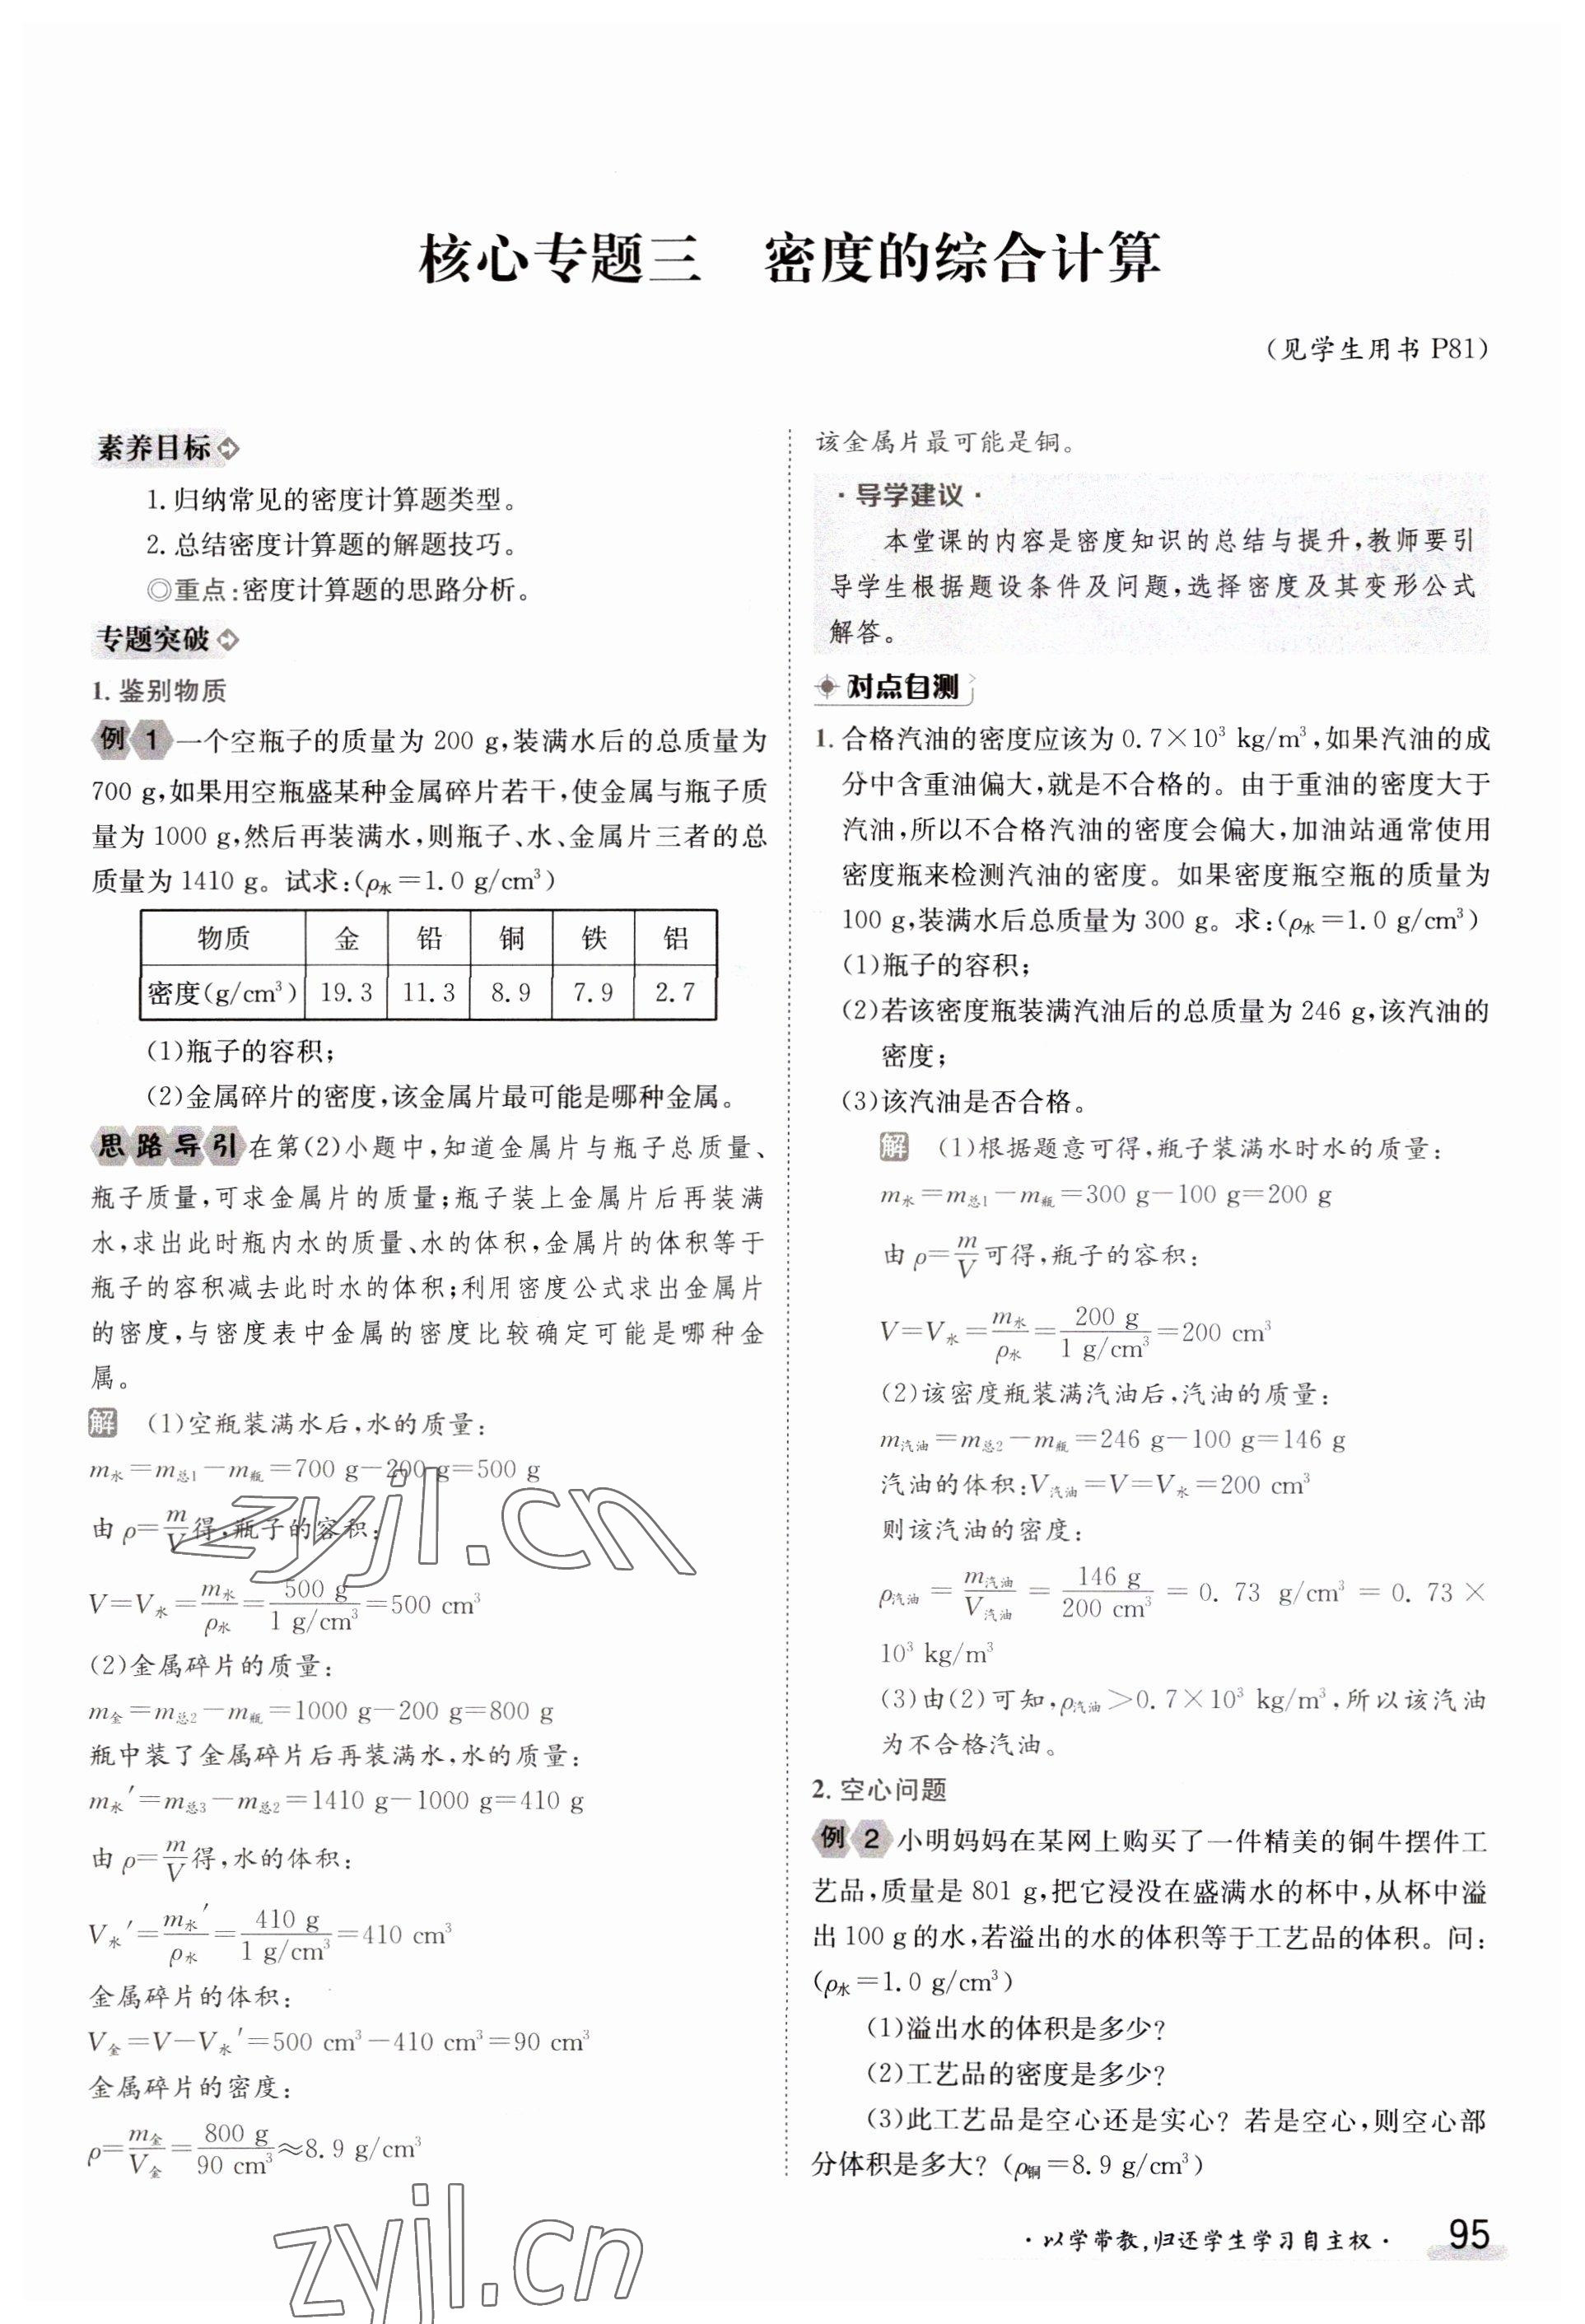 核心专题三 密度的综合计算
(见学生用书 P81)
素养目标
1. 归纳常见的密度计算题类型。
2. 总结密度计算题的解题技巧。
◎重点:密度计算题的思路分析。
专题突破
1. 鉴别物质
例 1 一个空瓶子的质量为 200 g,装满水后的总质量为
700 g,如果用空瓶盛某种金属碎片若干,使金属与瓶子质
量为 1000 g,然后再装满水,则瓶子、水、金属片三者的总
质量为 1410 g。试求:(ρ水=1.0 g/cm³)
物质 金 铅 铜 铁 铝
密度(g/cm³) 19.3 11.3 8.9 7.9 2.7
(1)瓶子的容积;
(2)金属碎片的密度,该金属片最可能是哪种金属。
思路导引 在第(2)小题中,知道金属片与瓶子总质量、
瓶子质量,可求金属片的质量;瓶子装上金属片后再装满
水,求出此时瓶内水的质量、水的体积,金属片的体积等于
瓶子的容积减去此时水的体积;利用密度公式求出金属片
的密度,与密度表中金属的密度比较确定可能是哪种金
属。
解 (1)空瓶装满水后,水的质量:
m水=m总1-m瓶=700 g-200 g=500 g
由 ρ=m/V得,瓶子的容积:
V=V水=m水/ρ水=500 g/1 g/cm³=500 cm³
(2)金属碎片的质量:
m金=m总2-m瓶=1000 g-200 g=800 g
瓶中装了金属碎片后再装满水,水的质量:
m水′=m总3-m总2=1410 g-1000 g=410 g
由 ρ=m/V得,水的体积:
V水′=m水′/ρ水=410 g/1 g/cm³=410 cm³
金属碎片的体积:
V金=V-V水′=500 cm³-410 cm³=90 cm³
金属碎片的密度:
ρ=m金/V金=800 g/90 cm³≈8.9 g/cm³
该金属片最可能是铜。
·导学建议·
本堂课的内容是密度知识的总结与提升,教师要引
导学生根据题设条件及问题,选择密度及其变形公式
解答。
对点自测
1. 合格汽油的密度应该为 0.7×10³ kg/m³,如果汽油的成
分中含重油偏大,就是不合格的。由于重油的密度大于
汽油,所以不合格汽油的密度会偏大,加油站通常使用
密度瓶来检测汽油的密度。如果密度瓶空瓶的质量为
100 g,装满水后总质量为 300 g。求:(ρ水=1.0 g/cm³)
(1)瓶子的容积;
(2)若该密度瓶装满汽油后的总质量为 246 g,该汽油的
密度;
(3)该汽油是否合格。
解 (1)根据题意可得,瓶子装满水时水的质量:
m水=m总1-m瓶=300 g-100 g=200 g
由 ρ=m/V可得,瓶子的容积:
V=V水=m水/ρ水=200 g/1 g/cm³=200 cm³
(2)该密度瓶装满汽油后,汽油的质量:
m汽油=m总2-m瓶=246 g-100 g=146 g
汽油的体积:V汽油=V=V水=200 cm³
则该汽油的密度:
ρ汽油=m汽油/V汽油=146 g/200 cm³=0.73 g/cm³=0.73×
10³ kg/m³
(3)由(2)可知,ρ汽油>0.7×10³ kg/m³,所以该汽油
为不合格汽油。
2. 空心问题
例 2 小明妈妈在某网上购买了一件精美的铜牛摆件工
艺品,质量是 801 g,把它浸没在盛满水的杯中,从杯中溢
出 100 g 的水,若溢出的水的体积等于工艺品的体积。问:
(ρ水=1.0 g/cm³)
(1)溢出水的体积是多少?
(2)工艺品的密度是多少?
(3)此工艺品是空心还是实心?若是空心,则空心部
分体积是多大?(ρ铜=8.9 g/cm³)
·以学带教,归还学生学习自主权· 95
zyjl.cn
zyjl.cn